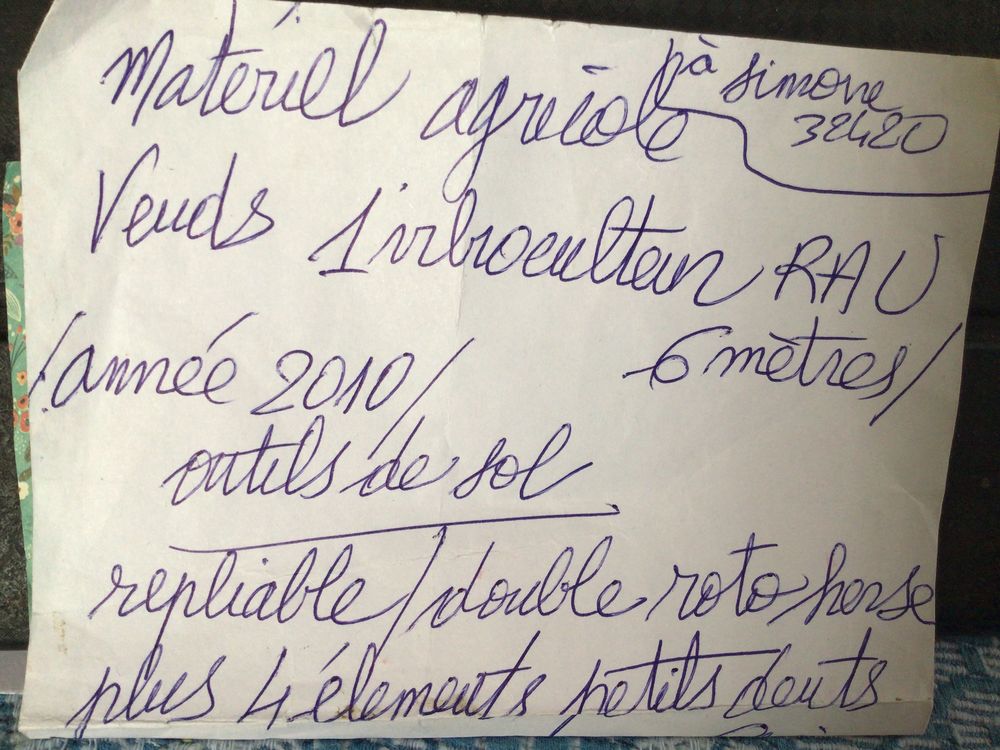 Matériel agricole
à simone
32420
Vends 1 vibroculteur RAU
/année 2010/ 6 mètres/
outils de sol
repliable/double roto herse
plus 4 élements petits dents